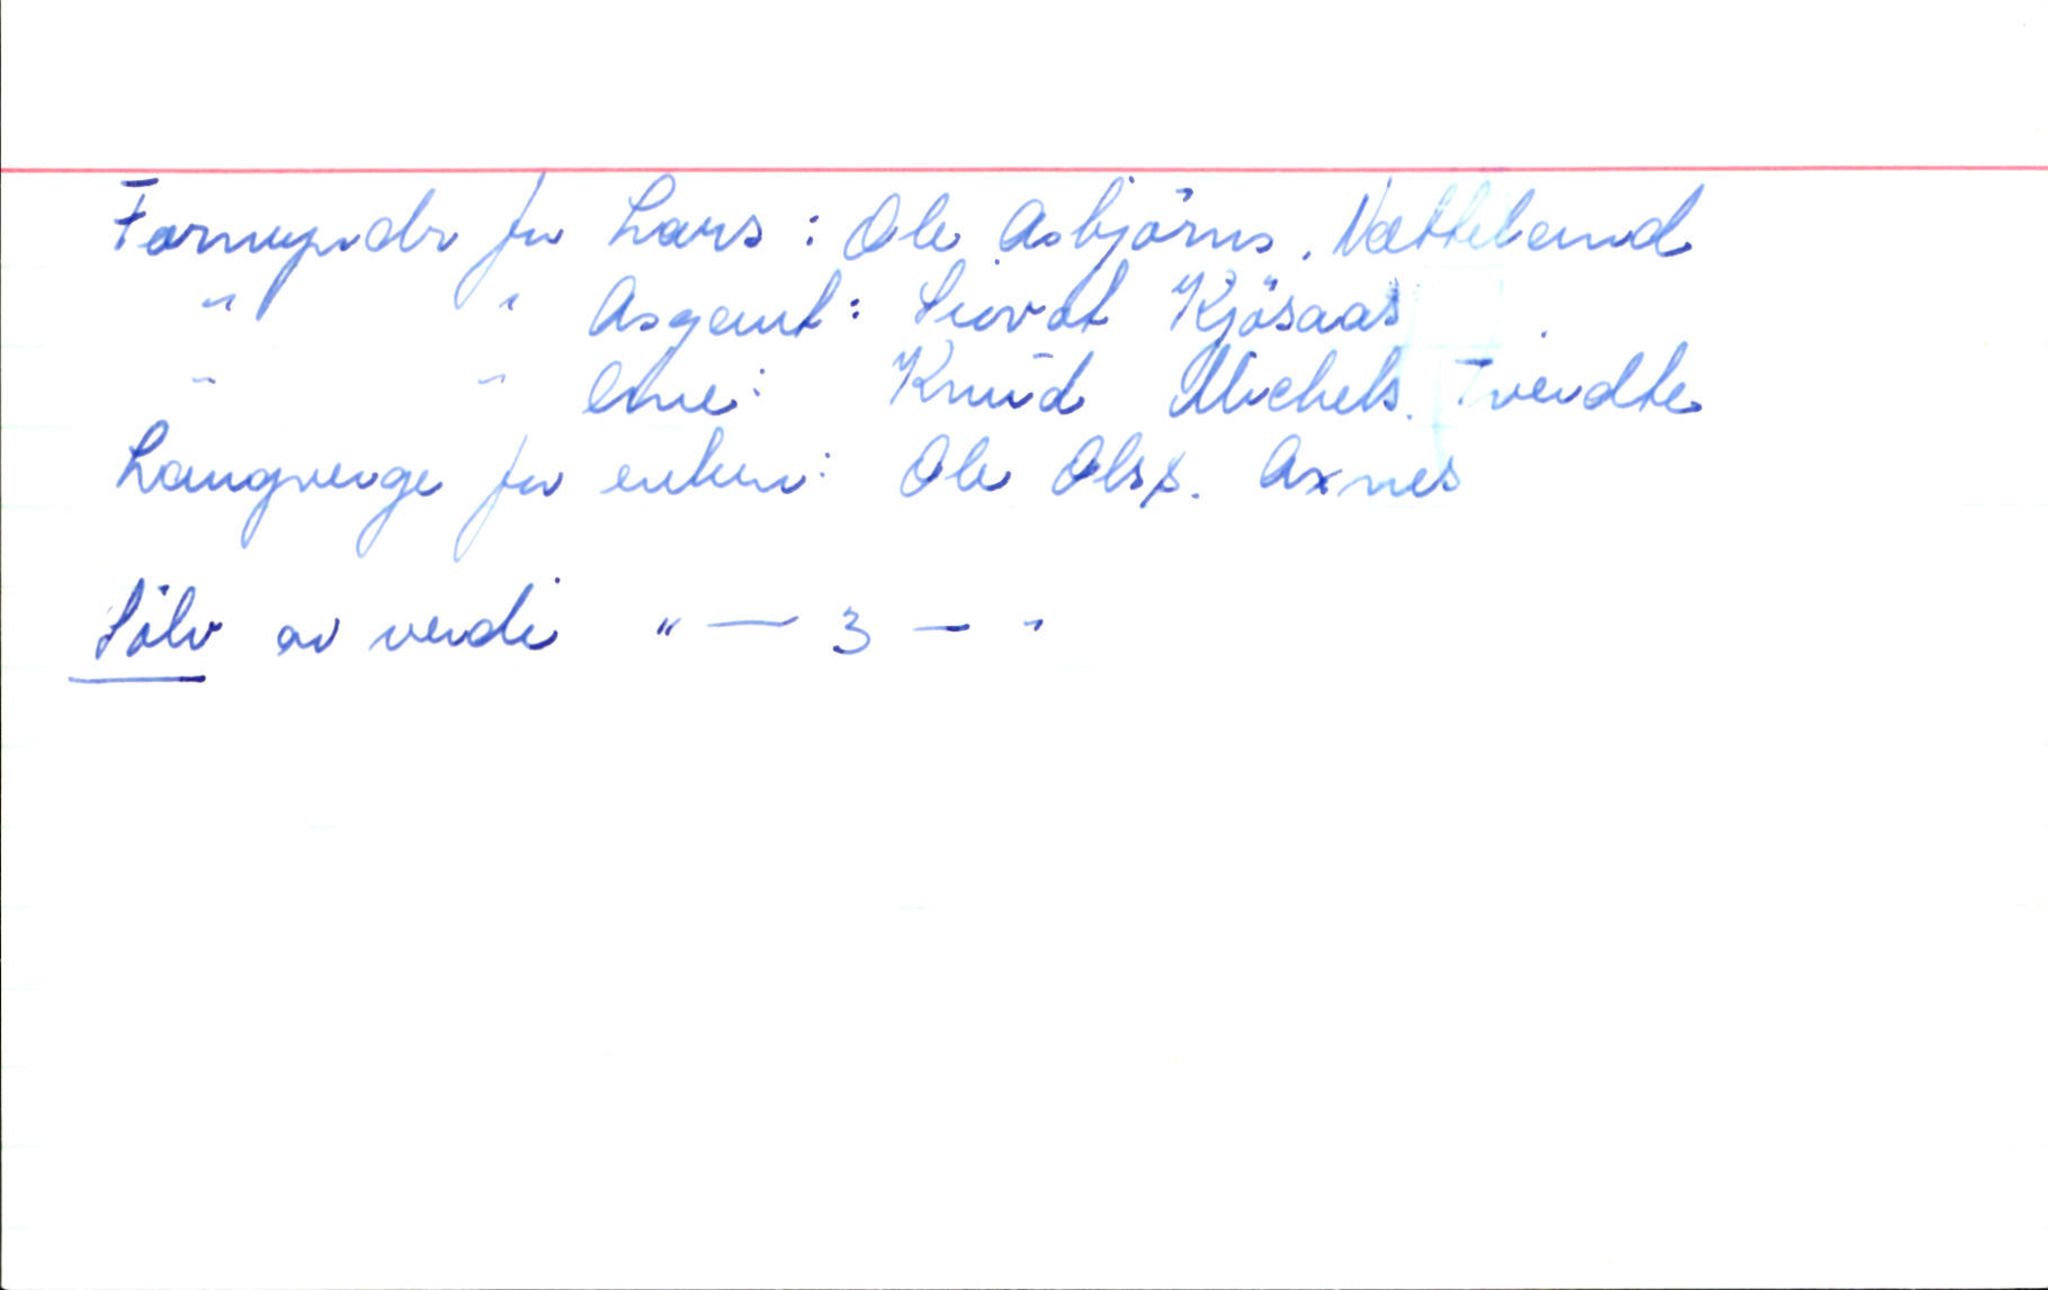 Formynder for Lars: Ole Asbjørns. Nættteland
" " Asgaut: Siovat Kjösaas
" " Ane: Knud Michels. Tveidte
Laugverge for enken: Ole Olss. Axnes
Sölv av verdi " — 3 — "